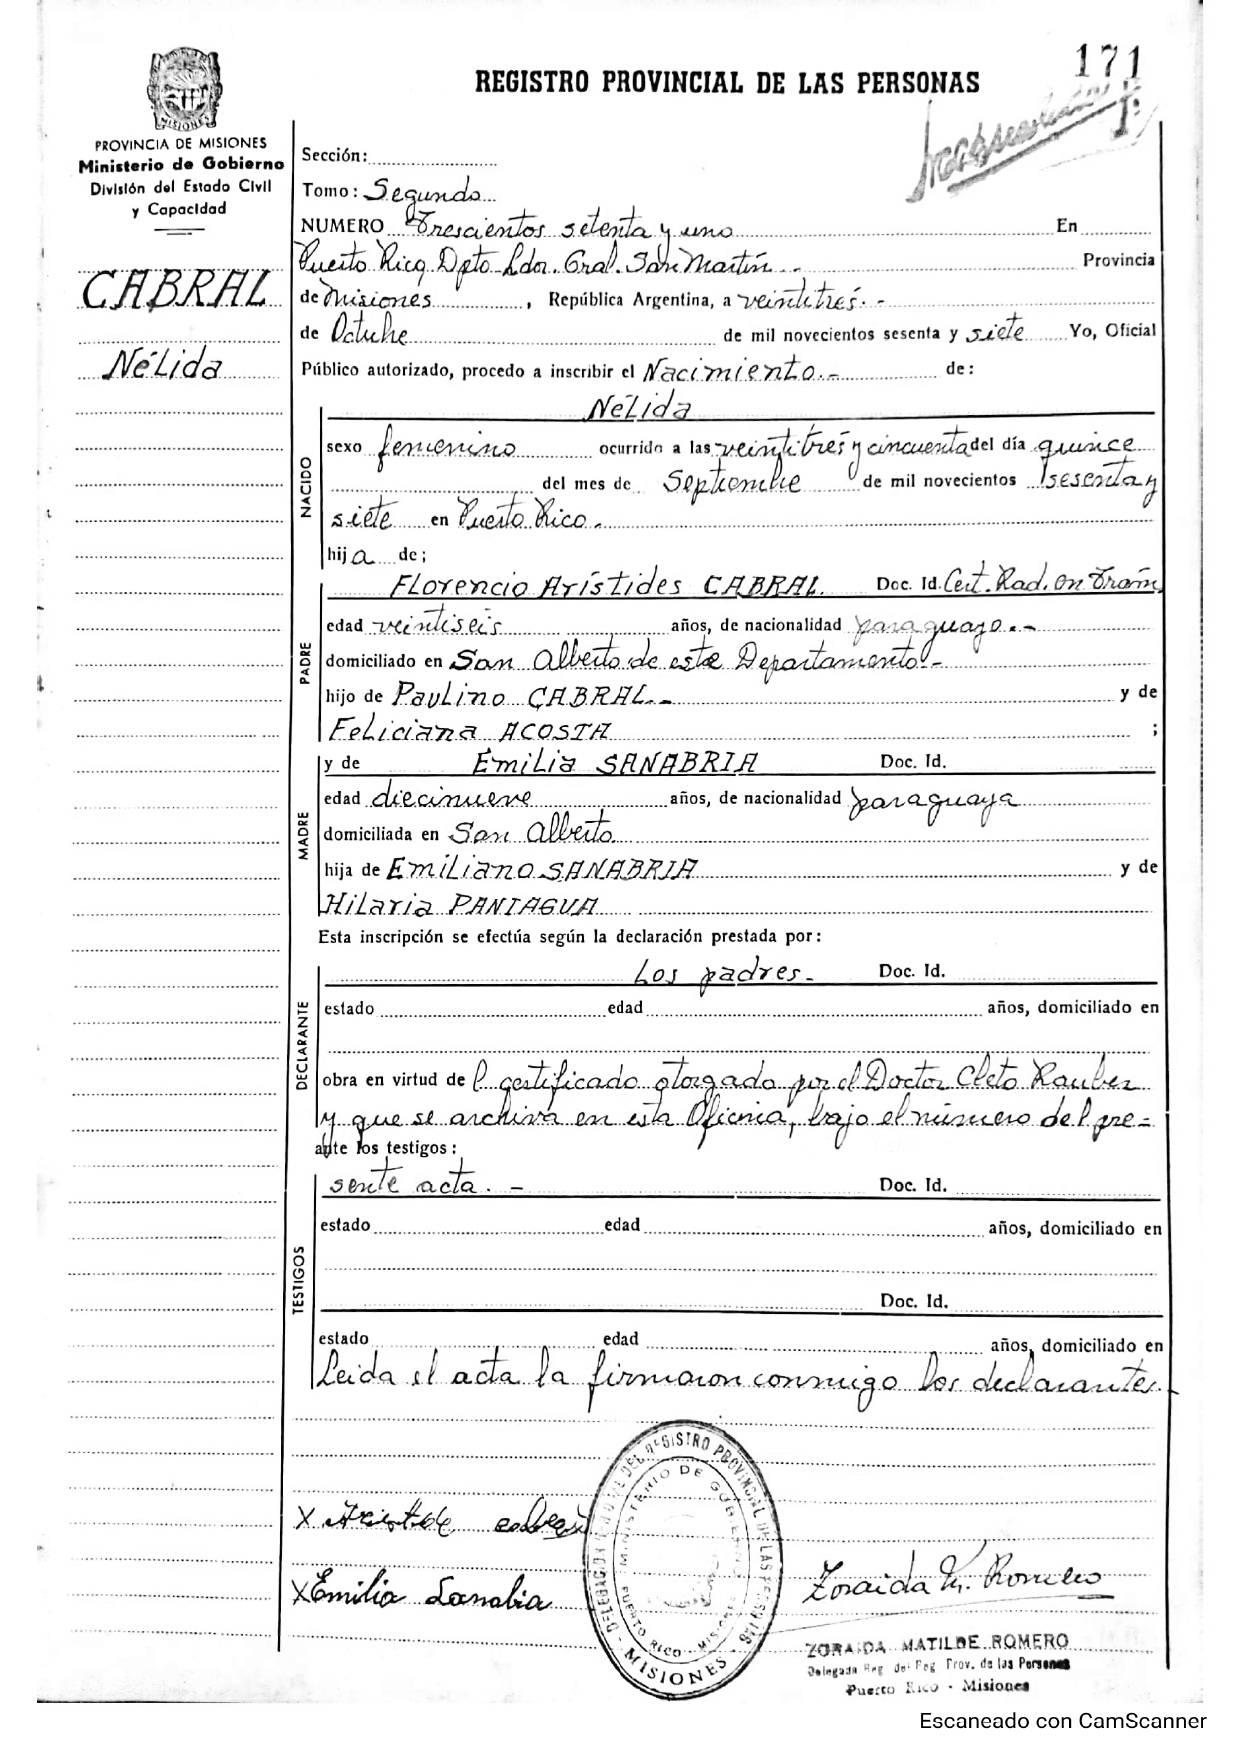 171
REGISTRO PROVINCIAL DE LAS PERSONAS
MISIONES
PROVINCIA DE MISIONES
Ministerio de Gobierno
División del Estado Civil
y Capacidad
CABRAL
Nélida
Sección:
Tomo: Segundo
NUMERO Trescientos setenta y uno En
Puerto Rico, Dpto. Ldor. Gral. San Martín.- Provincia
de Misiones, República Argentina, a veintitrés.-
de Octubre de mil novecientos sesenta y siete Yo, Oficial
Público autorizado, procedo a inscribir el Nacimiento.- de:
Nélida
NACIDO
sexo femenino ocurrido a las veintitrés y cincuenta del día quince
del mes de Septiembre de mil novecientos sesenta y
siete en Puerto Rico.
hija de;
PADRE
Florencio Arístides CABRAL. Doc. Id. Cert. Rad. en Trám
edad veintiseis años, de nacionalidad paraguayo.-
domiciliado en San Alberto de este Departamento.-
hijo de Paulino CABRAL.- y de
Feliciana ACOSTA ;
MADRE
y de Emilia SANABRIA Doc. Id.
edad diecinueve años, de nacionalidad paraguaya
domiciliada en San Alberto.
hija de Emiliano SANABRIA y de
Hilaria PANIAGUA
Esta inscripción se efectúa según la declaración prestada por:
DECLARANTE
Los padres.- Doc. Id.
estado edad años, domiciliado en
obra en virtud del certificado otorgado por el Doctor Cleto Rauber
y que se archiva en esta Oficina, bajo el número del pre-
ante los testigos:
TESTIGOS
sente acta.- Doc. Id.
estado edad años, domiciliado en
Doc. Id.
estado edad años, domiciliado en
Leida el acta la firmaron conmigo los declarantes.
DEL REGISTRO PROVINCIAL DE LAS PERSONAS
MINISTERIO DE GOBIERNO
PUERTO RICO - MISIONES
MISIONES
X Emilia Sanabia
Zoraida M. Romero
ZORAIDA MATILDE ROMERO
Delegada Reg. del Reg. Prov. de las Personas
Puerto Rico - Misiones
Escaneado con CamScanner